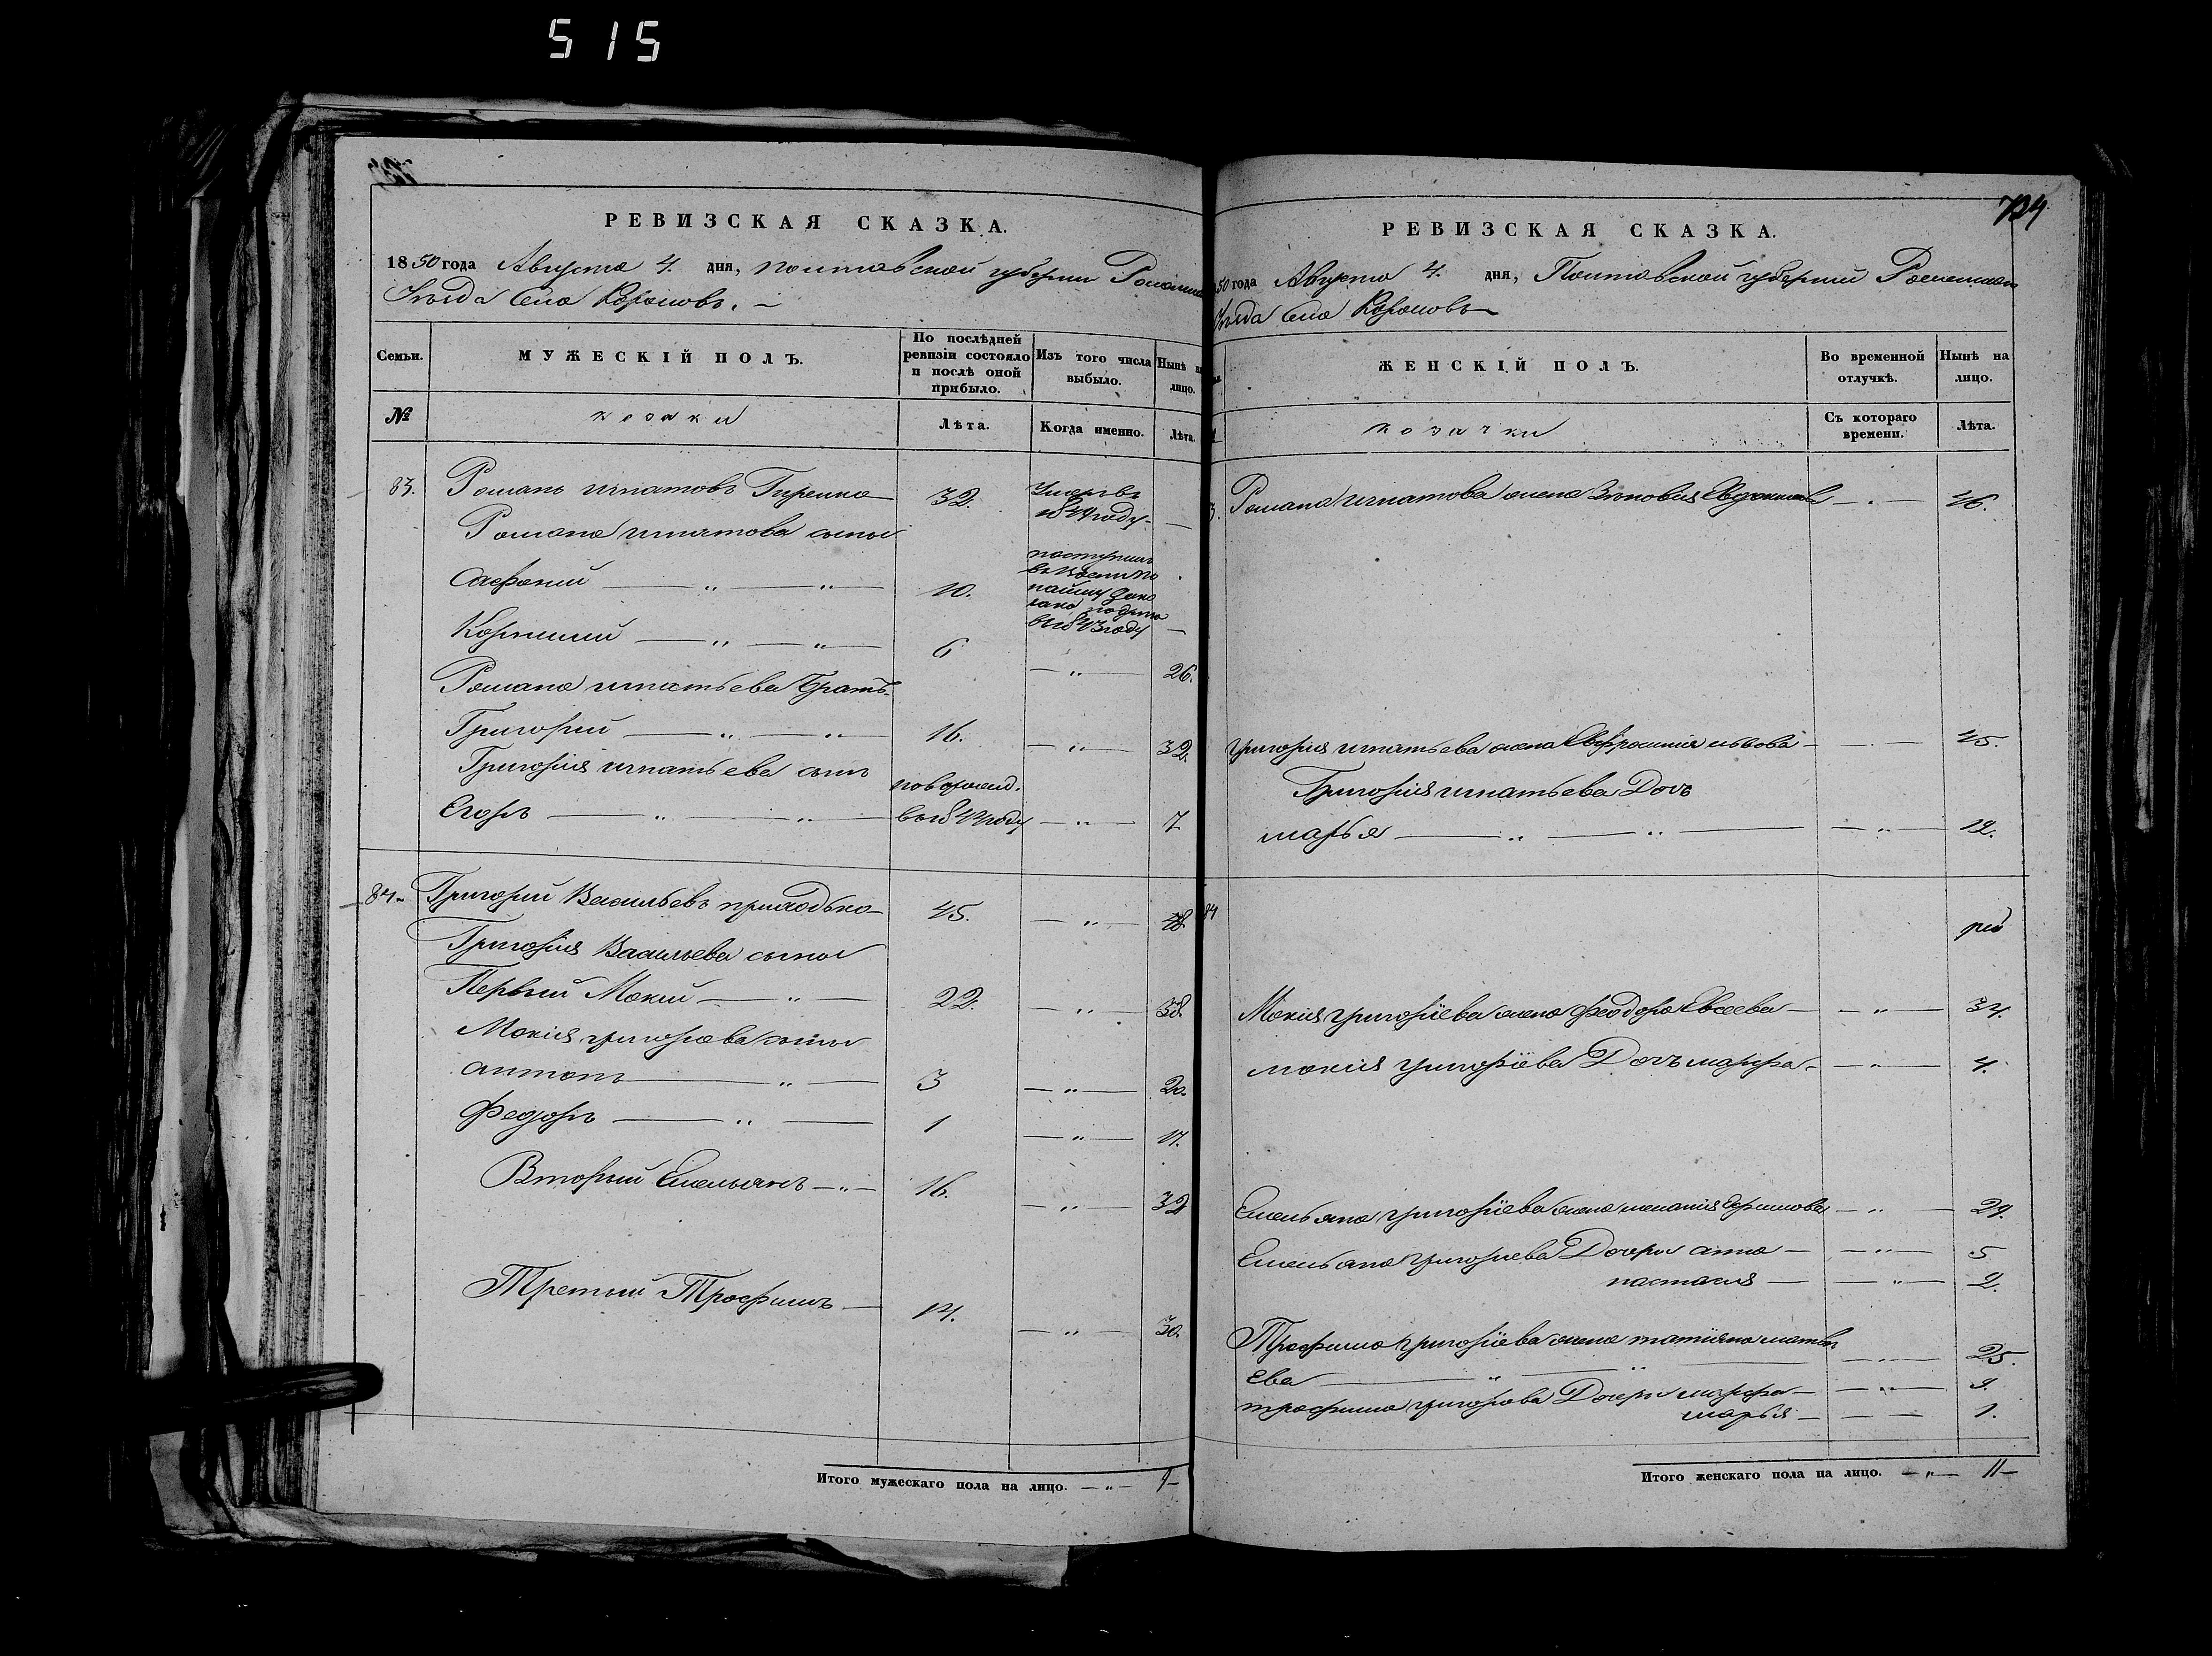 515
РЕВИЗСКАЯ СКАЗКА.
1850 года Августа 4. дня, Полтавской губернии
Уезда Села
Семьи.
МУЖЕСКІЙ ПОЛЪ.
По послѣдней ревизіи состояло и послѣ оной прибыло.
Изъ того числа выбыло.
Нынѣ на лицо.
№
козаки
Лѣта.
Когда именно.
Лѣта.
83. Романъ Игнатовъ 32. Умеръ въ 1849 году —
Романа Игнатова сыны
Софроній — „ — „ 10. поступилъ
въ 1843 году —
Корнилий — „ — „ — 6 — „ — 26.
Романа Игнатьева братъ
Григорий — „ — „ 16. — „ — 32.
Григорія Игнатьева сынъ
Егоръ — „ — „ — новорожд. въ 1843 году — „ — 7
84. Григорий Васильевъ Приходько 45. — „ —
Григорія Васильева сыны
Первый Мокий — „ — 22. — „ — 38.
Мокія Григорьева сыны
Антонъ — „ — 3 — „ — 20.
Федоръ — „ — 1 — „ — 17.
Вторый Емельянъ — „ — 16. — „ — 32
Третий Трофимъ — 14. — „ — 30.
Итого мужескаго пола на лицо. — „ — 9 —
724
РЕВИЗСКАЯ СКАЗКА.
50 года Августа 4. дня, Полтавской губерний
Уезда Села
ЖЕНСКІЙ ПОЛЪ.
Во временной отлучкѣ.
Нынѣ на лицо.
козачки
Съ котораго времени.
Лѣта.
3. Романа Игнатова жена Зиновия — „ — 46.
Григорія Игнатьева жена Евфросиния Львова — 45.
Григорія Игнатьева Дочь
Марья — „ — „ — — „ — 12.
84
Мокія Григорiева жена Феодора Евсеева — — „ — 34.
Мокія Григорiева Дочь Марфа — — „ — 4.
Емельяна Григорiева жена Мелания Ефимова — „ — 29.
Емельяна Григориева Дочери Анна — — „ — 5
Настасия — — „ — 2.
Трофима Григорiева жена Татияна Матве
ева — „ — „ — — „ — 25.
Трофима Григорова Дочери Марфа — — „ — 9.
Марья — — — 1.
Итого женскаго пола на лицо. — „ — 11 —